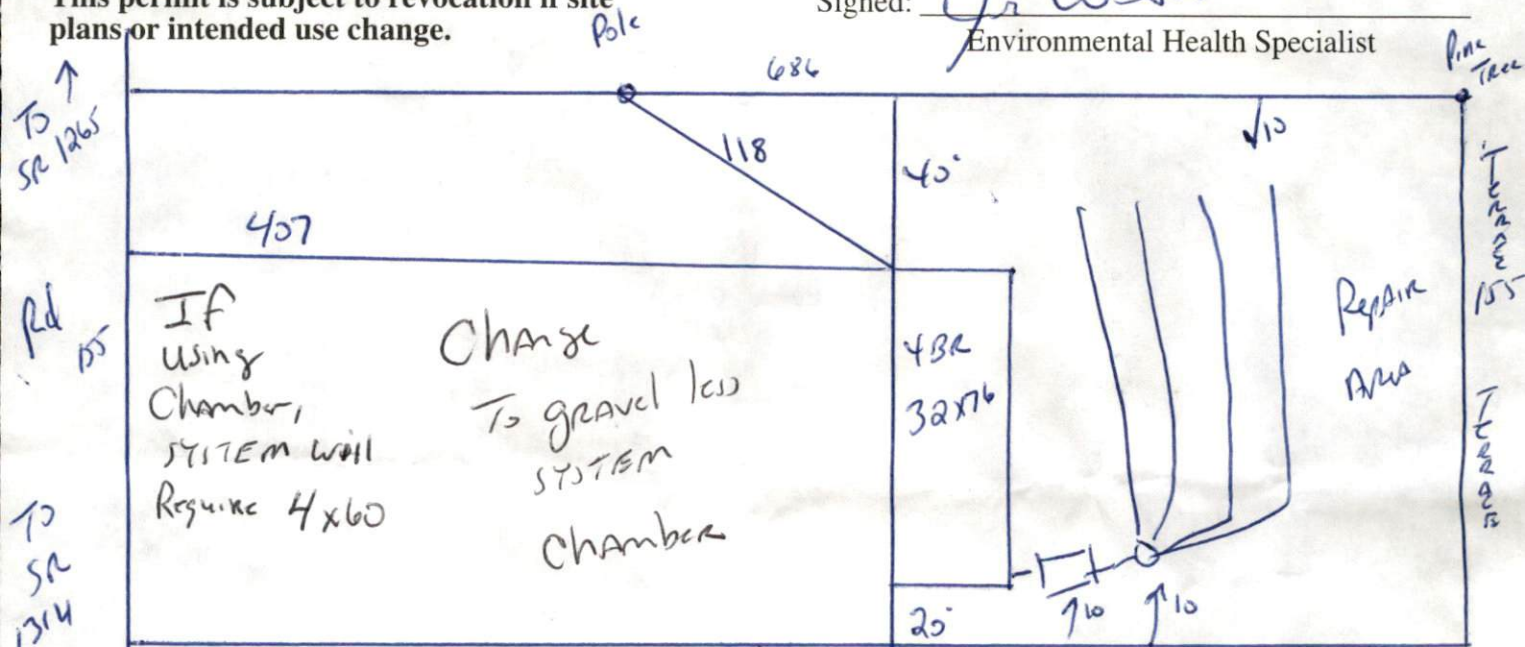 This permit is subject to revocation if site
plans or intended use change.
Signed:
Environmental Health Specialist
Pole
686
Pine
Tree
To
SR 1265
118
40'
√10
407
Rd
155
If
using
Chamber,
SYSTEM will
Require 4x60
Change
To gravel less
SYSTEM
Chamber
4BR
32x76
Repair
Area
Terrace
155
Terrace
To
SR
1314
20'
↑10
↑10